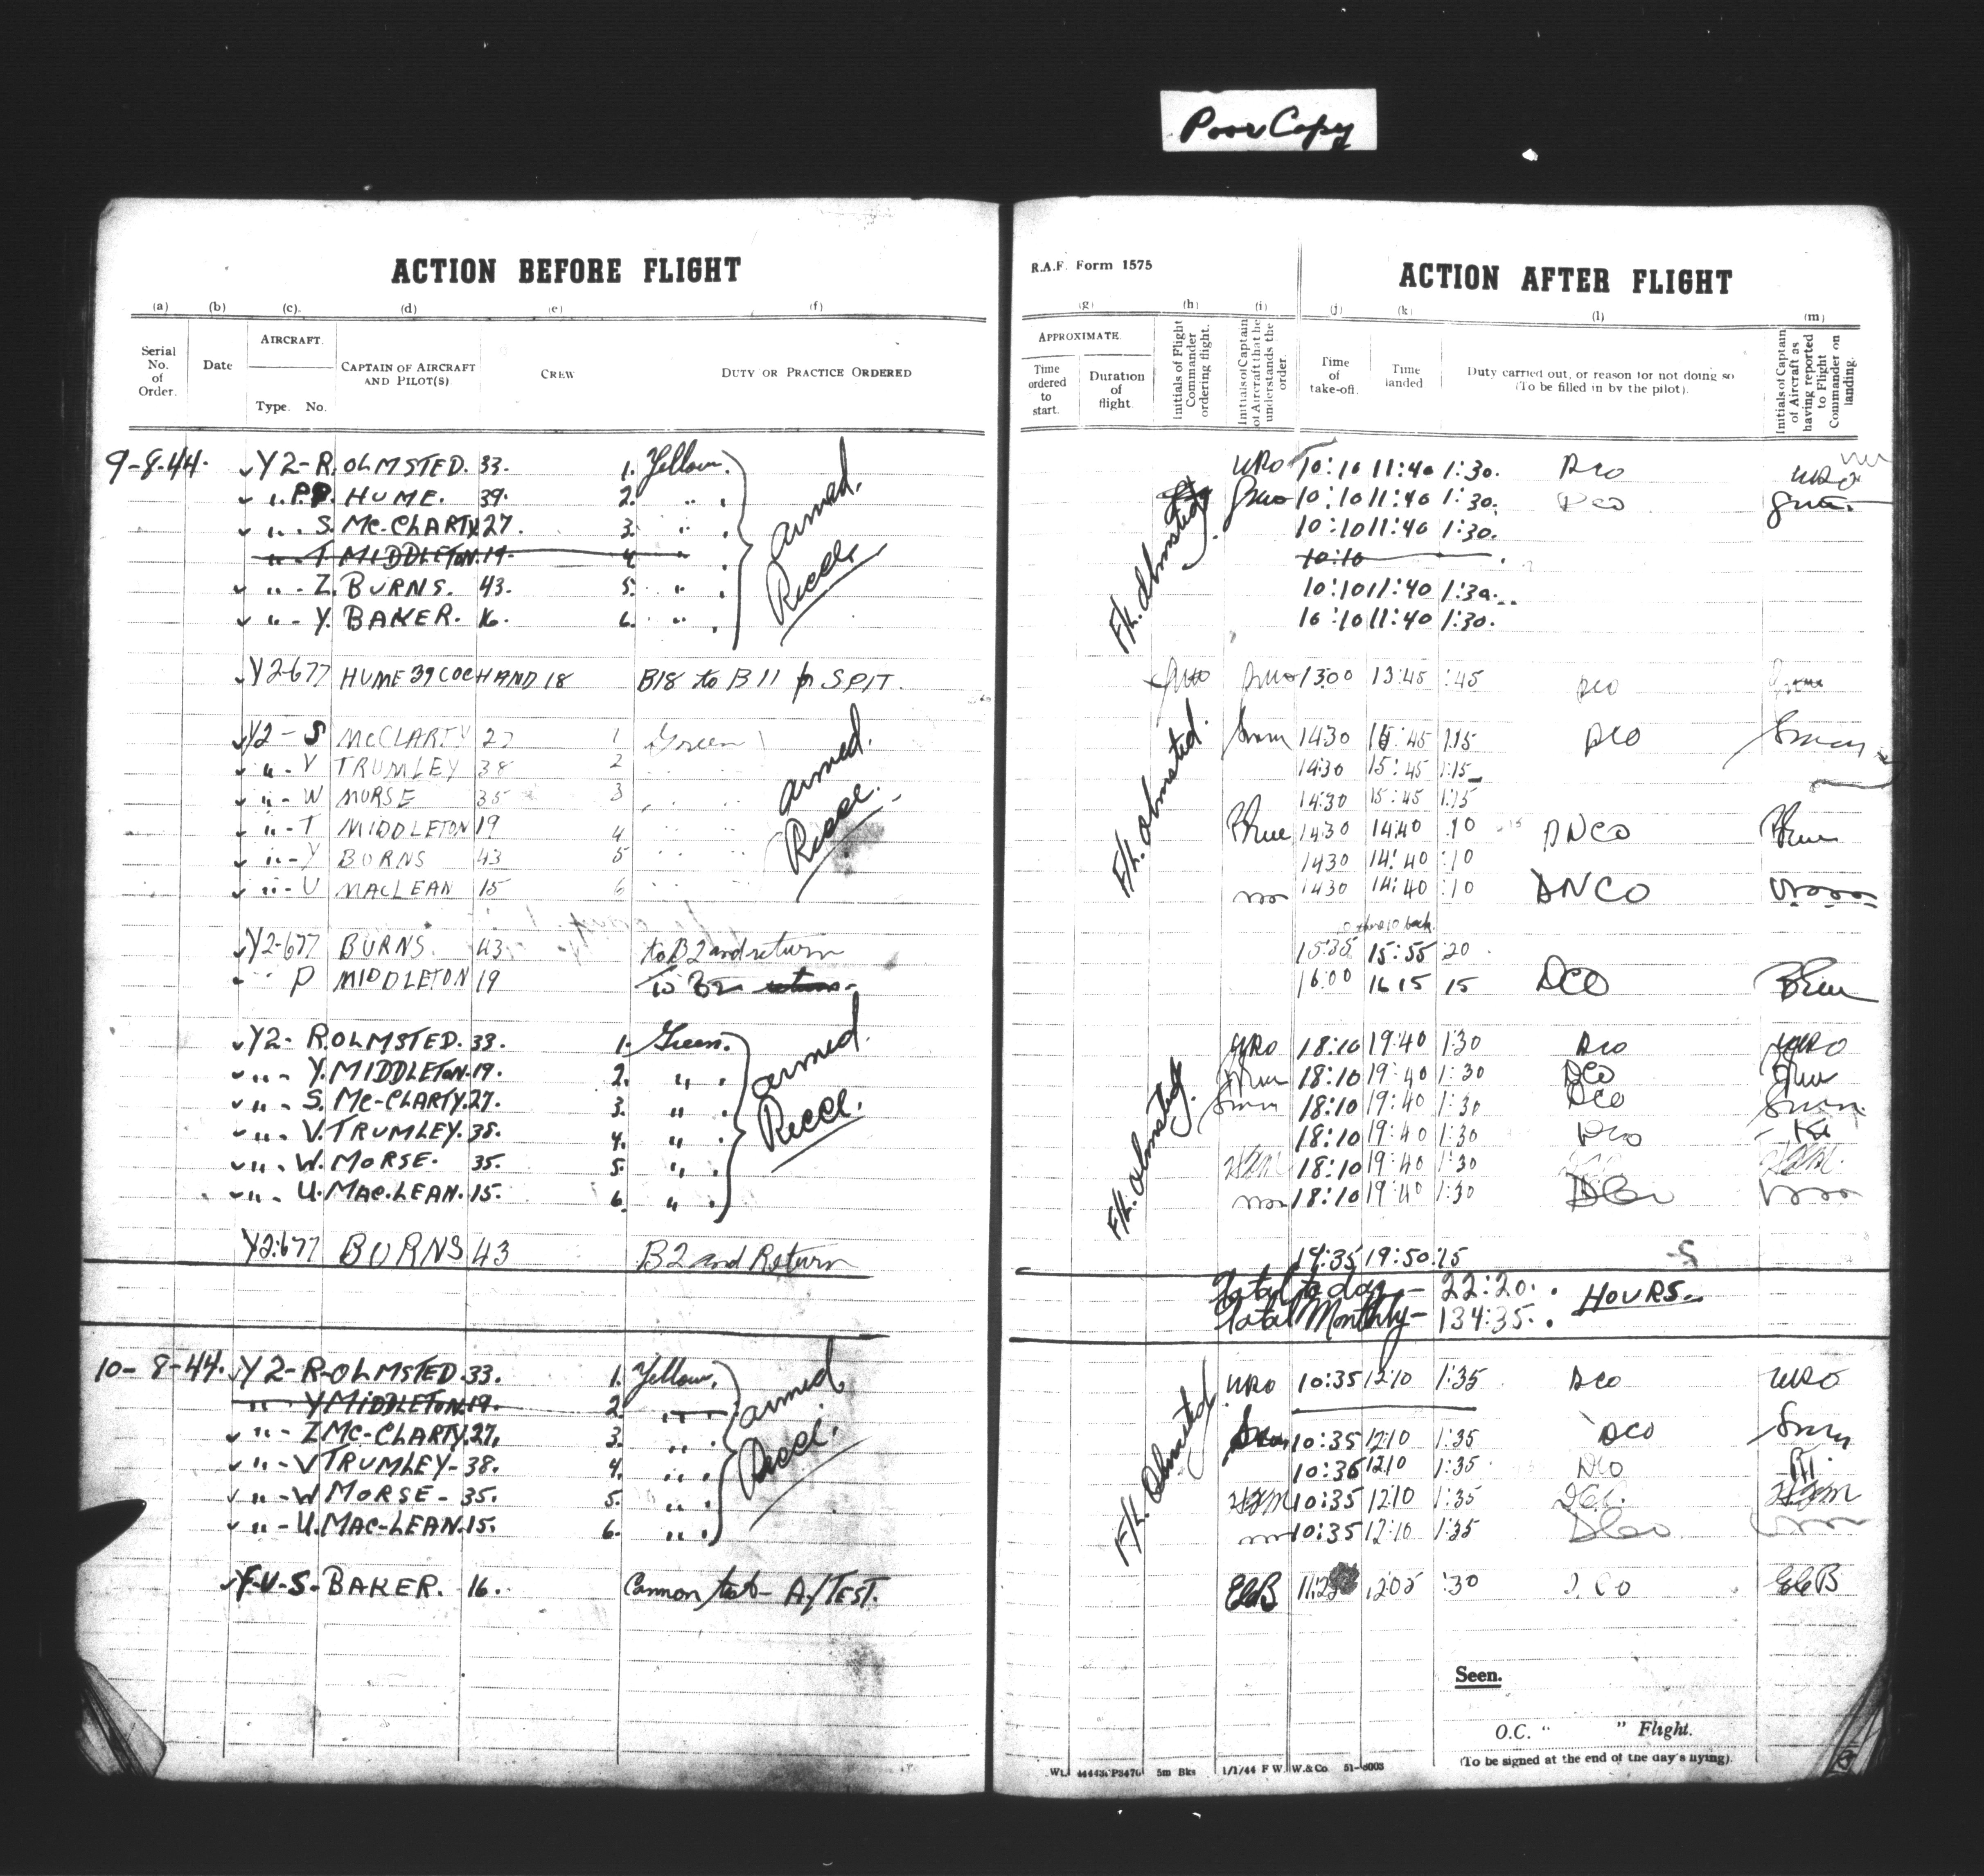 Poor Copy
ACTION BEFORE FLIGHT
(a) (b) (c). (d) (e) (f)
Serial No. of Order.
Date
AIRCRAFT.
Type. No.
CAPTAIN OF AIRCRAFT AND PILOT(S)
CREW
DUTY OR PRACTICE ORDERED
9-8-44. Y2-R. OLMSTED. 33. 1. Yellow. Armed. Recce.
" HUME. 39. 2. " .
" . S. Mc-CLARTY 27. 3. " .
" T. MIDDLETON. 19. 4. "
" - Z. BURNS. 43. 5. " .
" - Y. BAKER. 16. 6. " .
Y2-677 HUME 39 COCHAND 18 B18 to B11 SPIT.
Y2-S McCLARTY 27 1 Green armed. Recce.
" - V TRUMLEY 38 2
" - W MORSE 35 3
" - T MIDDLETON 19 4
" - Y BURNS 43 5
" - U MACLEAN 15 6
Y2-677 BURNS 43 to B2 and return
" P MIDDLETON 19 To B2 return
Y2- R. OLMSTED. 33. 1. Green. armed. Recce.
" - Y. MIDDLETON. 19. 2. " .
" - S. Mc-CLARTY. 27. 3. " .
" - V. TRUMLEY. 38. 4. " .
" - W. MORSE. 35. 5. " .
" - U. MAC.LEAN. 15. 6. " .
Y2:677 BURNS 43 B2 and Return
10-8-44. Y2-R-OLMSTED. 33. 1. Yellow. armed Recce.
" Y MIDDLETON. 19. 2. "
" - Z MC-CLARTY. 27. 3. " .
" - V TRUMLEY- 38. 4. " .
" - W MORSE - 35. 5. " .
" - U. MAC-LEAN. 15. 6. " .
BAKER. 16. Cannon test- A/TEST.
R.A.F. Form 1575
ACTION AFTER FLIGHT
(g) (h) (i) (j) (k) (l) (m)
APPROXIMATE.
Time ordered to start.
Duration of flight.
Initials of Flight Commander ordering flight.
Initials of Captain of Aircraft that he understands the order.
Time of take-off.
Time landed.
Duty carried out, or reason for not doing so (To be filled in by the pilot).
Initials of Captain of Aircraft as having reported to Flight Commander on landing.
F/L. Olmsted.
WRO 10:10 11:40 1:30. DCO WRO
10:10 11:40 1:30. DCO
10:10 11:40 1:30.
10:10
10:10 11:40 1:30.
10:10 11:40 1:30.
1300 13:45 :45 DCO
F/L. Olmsted.
1430 15:45 1:15 DCO
14:30 15:45 1:15
14:30 15:45 1:15
14:30 14:40 :10 DNCO
1430 14:40 :10
1430 14:40 :10 DNCO
15:35 15:55 :20
16:00 16 15 15 DCO
F/L. Olmsted.
WRO 18:10 19:40 1:30 DCO WRO
18:10 19:40 1:30 DCO
18:10 19:40 1:30 DCO
18:10 19:40 1:30 DCO
18:10 19:40 1:30
18:10 19:40 1:30 DCO
19:35 19:50 :15
Total to day - 22:20. HOURS.
Total Monthly - 134:35.
F/L. Olmsted
WRO 10:35 12:10 1:35 DCO WRO
10:35 12:10 1:35 DCO
10:35 12:10 1:35 DCO
10:35 12:10 1:35 DCO
10:35 12:10 1:35 DCO
1205 :30 DCO
Seen.
O.C. " " Flight.
(To be signed at the end of the day's flying).
5m Bks 1/1/44 F.W.W.&Co.